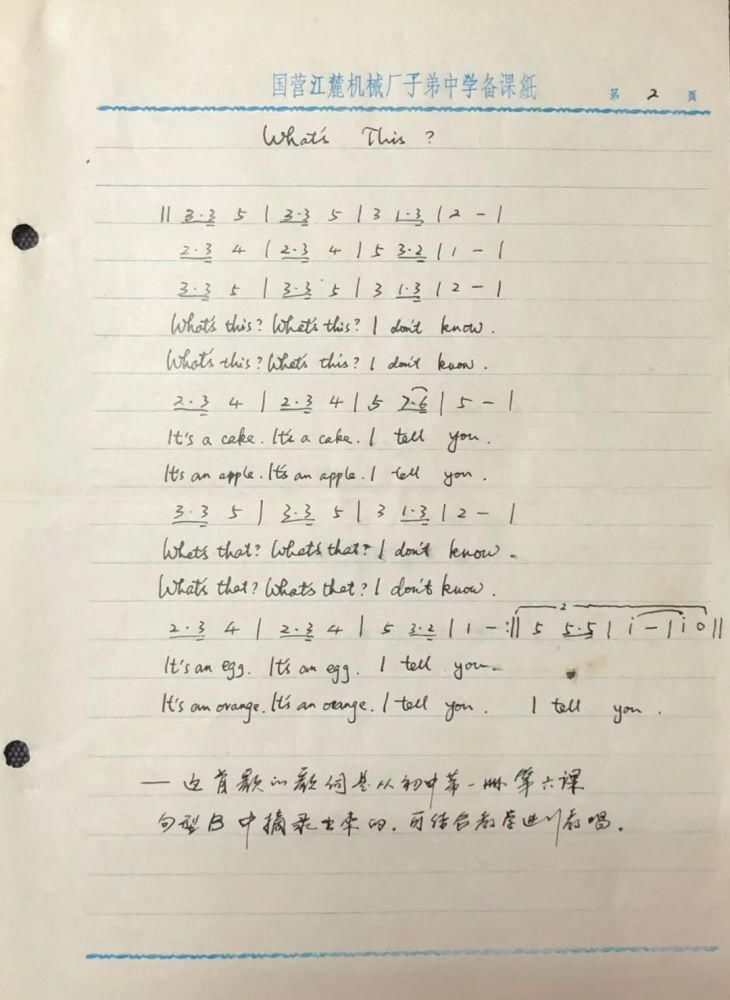 国营江麓机械厂子弟中学备课纸 第 2 页
What's This?
|| 3·3 5 | 3·3 5 | 3 1·3 | 2 - |
2·3 4 | 2·3 4 | 5 3·2 | 1 - |
3·3 5 | 3·3 5 | 3 1·3 | 2 - |
What's this? What's this? I don't know.
What's this? What's this? I don't know.
2·3 4 | 2·3 4 | 5 7·6 | 5 - |
It's a cake. It's a cake. I tell you.
It's an apple. It's an apple. I tell you.
3·3 5 | 3·3 5 | 3 1·3 | 2 - |
What's that? What's that? I don't know.
What's that? What's that? I don't know.
2·3 4 | 2·3 4 | 5 3·2 | 1 - :|| 2 5 5·5 | i - | i 0 ||
It's an egg. It's an egg. I tell you.
It's an orange. It's an orange. I tell you. I tell you.
— 这首歌的歌词是从初中第一册第六课
句型B中摘录出来的,可结合教学进行教唱。